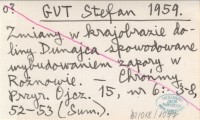 03 GUT Stefan 1959.
Zmiany w krajobrazie do-
liny Dunajca spowodowane
wybudowaniem zapory w
Rożnowie. – Chrońmy
Przyr. Ojcz. 15, nr 6: 3-8,
52-53 (Sum.).